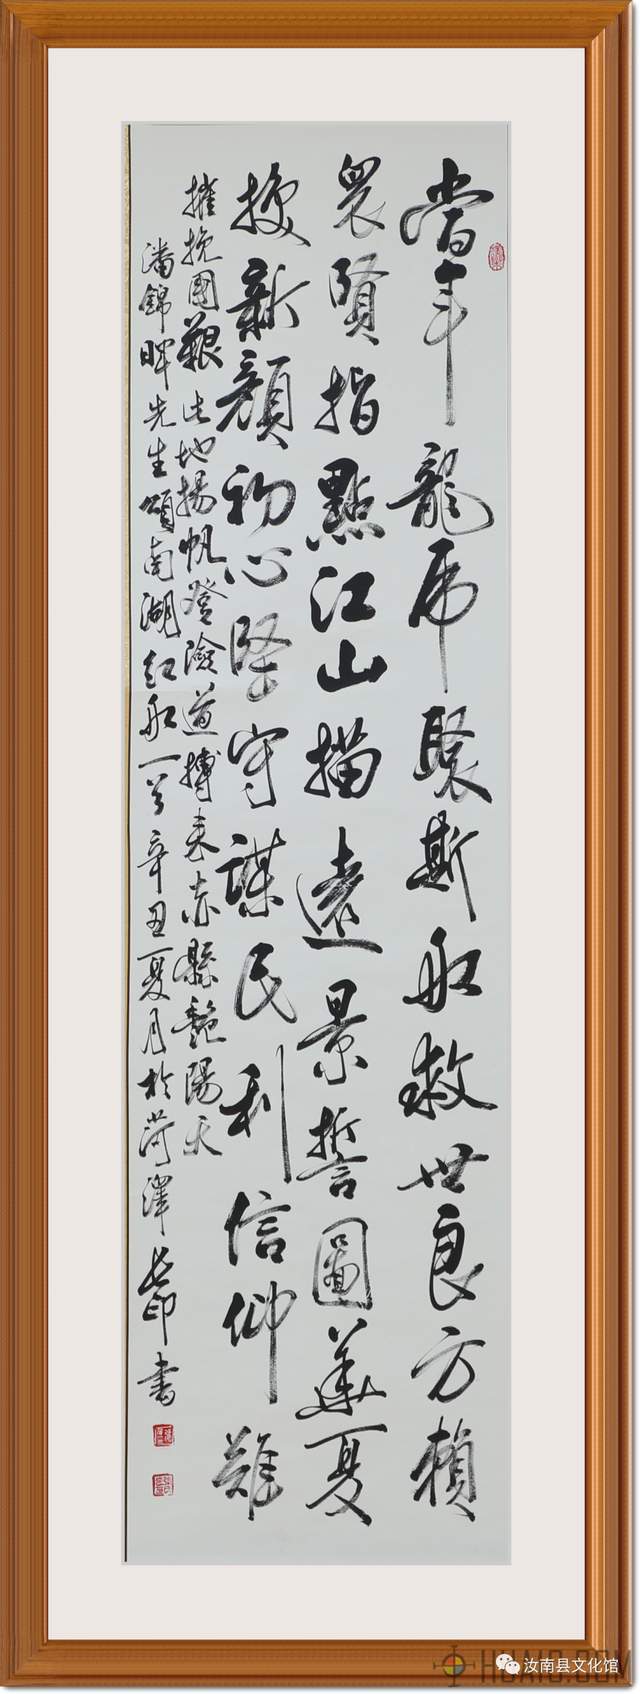 當年龍虎聚斯船救世良方賴
眾賢指點江山描遠景誓圖華夏
換新顏初心堅守謀民利信仰難
摧挽國艱此地揚帆登險道搏來赤縣艷陽天
潘錦暉先生頌南湖紅船一首辛丑夏月於菏澤長印書
汝南县文化馆